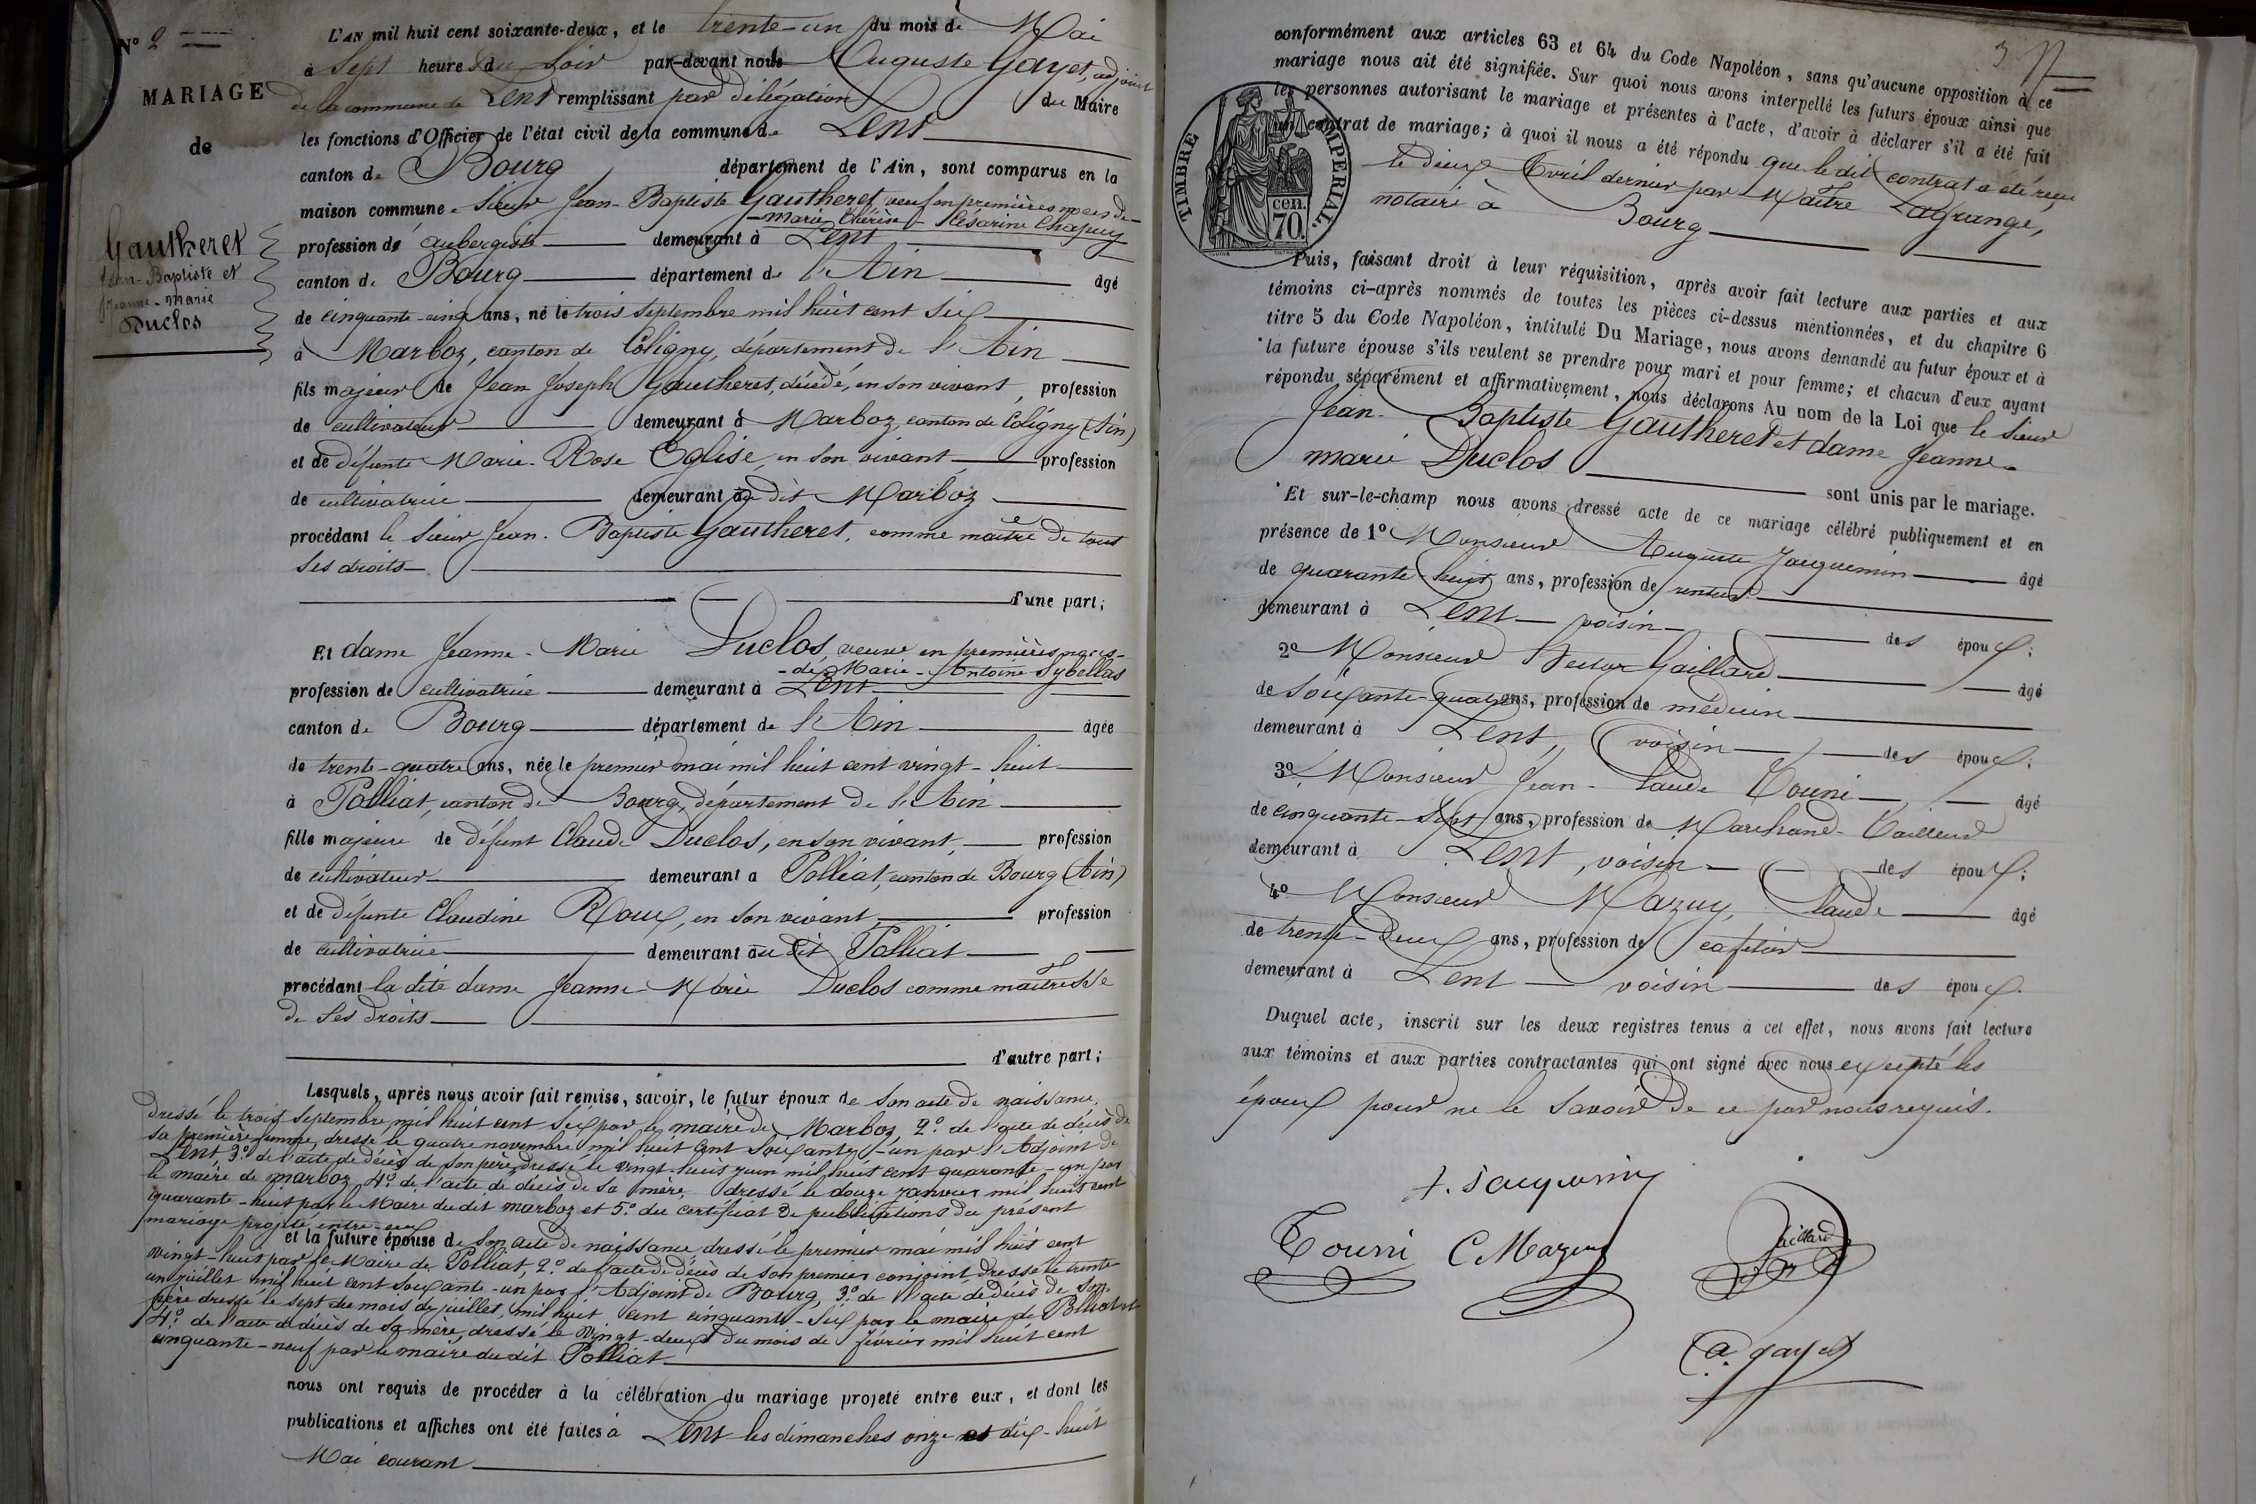 N° 2
MARIAGE
de
Gautheret
Jean-Baptiste et
Jeanne-Marie
Duclos
L'AN mil huit cent soixante-deux, et le trente-un du mois de Mai
à Sept heure du Soir par-devant nous Auguste Gayet, adjoint
de la commune de Lent remplissant par délégation du Maire
les fonctions d'Officier de l'état civil de la commune de Lent
canton de Bourg département de l'Ain, sont comparus en la
maison commune. Sieur Jean-Baptiste Gautheret, veuf en premières noces de
Marie Thérèse Césarine Chapuy
profession de aubergiste demeurant à Lent
canton de Bourg département de l'Ain âgé
de cinquante-cinq ans, né le trois Septembre mil huit cent Six
à Marboz, canton de Coligny, département de l'Ain
fils majeur de Jean Joseph Gautheret, décédé, en son vivant, profession
de cultivateur demeurant à Marboz, canton de Coligny (Ain)
et de défunte Marie-Rose Eglise, en son vivant profession
de cultivatrice demeurant au dit Marboz
procédant le Sieur Jean-Baptiste Gautheret, comme maître de tous
Ses droits
d'une part;
Et dame Jeanne-Marie Duclos, veuve en premières noces
de Marie-Antoine Sybellas
profession de cultivatrice demeurant à Lent
canton de Bourg département de l'Ain âgée
de trente-quatre ans, née le premier mai mil huit cent vingt-huit
à Polliat, canton de Bourg, département de l'Ain
fille majeure de défunt Claude Duclos, en son vivant, profession
de cultivateur demeurant à Polliat, canton de Bourg (Ain)
et de défunte Claudine Roux, en son vivant profession
de cultivatrice demeurant au dit Polliat
procédant la dite dame Jeanne-Marie Duclos comme maîtresse
de Ses droits
d'autre part;
Lesquels, après nous avoir fait remise, savoir, le futur époux de son acte de naissance,
dressé le trois Septembre mil huit cent Six par le maire de Marboz, 2° de l'acte de décès de
sa première femme, dressé le quatre novembre mil huit cent Soixante-un par l'Adjoint de
Lent, 3° de l'acte de décès de son père, dressé le vingt-huit juin mil huit cent quarante-un par
le maire de marboz, 4° de l'acte de décès de Sa mère, dressé le douze janvier mil huit cent
quarante-huit par le Maire du dit marboz et 5° du certificat de publications du présent
mariage projeté entre eux
et la future épouse de Son acte de naissance dressé le premier mai mil huit cent
vingt-huit par le Maire de Polliat, 2° de l'acte de décès de son premier conjoint dressé le trente
un juillet mil huit cent soixante-un par l'Adjoint de Bourg, 3° de l'acte de décès de Son
père dressé le sept du mois de juillet, mil huit cent cinquante-Six par le maire de Polliat et
4° de l'acte de décès de Sa mère, dressé le Vingt-deux du mois de février mil huit cent
cinquante-neuf par le maire du dit Polliat
nous ont requis de procéder à la célébration du mariage projeté entre eux, et dont les
publications et affiches ont été faites à Lent les dimanches onze et dix-huit
Mai courant
3
conformément aux articles 63 et 64 du Code Napoléon, sans qu'aucune opposition à ce
mariage nous ait été signifiée. Sur quoi nous avons interpellé les futurs époux ainsi que
les personnes autorisant le mariage et présentes à l'acte, d'avoir à déclarer s'il a été fait
un contrat de mariage; à quoi il nous a été répondu que le dit contrat a été reçu
le deux Avril dernier par Maître Lagrange,
notaire à Bourg
TIMBRE IMPÉRIAL.
cen.
70.
Puis, faisant droit à leur réquisition, après avoir fait lecture aux parties et aux
témoins ci-après nommés de toutes les pièces ci-dessus mentionnées, et du chapitre 6
titre 5 du Code Napoléon, intitulé Du Mariage, nous avons demandé au futur époux et à
la future épouse s'ils veulent se prendre pour mari et pour femme; et chacun d'eux ayant
répondu séparément et affirmativement, nous déclarons Au nom de la Loi que le Sieur
Jean-Baptiste Gautheret et dame Jeanne-
marie Duclos sont unis par le mariage.
Et sur-le-champ nous avons dressé acte de ce mariage célébré publiquement et en
présence de 1° Monsieur Auguste Jacquemin âgé
de quarante-huit ans, profession de rentier
demeurant à Lent voisin des époux;
2° Monsieur Hector Gaillard âgé
de Soixante-quatre ans, profession de médecin
demeurant à Lent, voisin des époux;
3° Monsieur Jean-Claude Tourni âgé
de cinquante-Sept ans, profession de Marchand-Tailleur
demeurant à Lent, voisin des époux;
4° Monsieur Mazuy, Claude âgé
de trente-deux ans, profession de cafetier
demeurant à Lent voisin des époux.
Duquel acte, inscrit sur les deux registres tenus à cet effet, nous avons fait lecture
aux témoins et aux parties contractantes qui ont signé avec nous excepté les
époux pour ne le Savoir de ce par nous requis.
A. Jacquemin
Tourni C Mazuy Gaillard
a. gayet